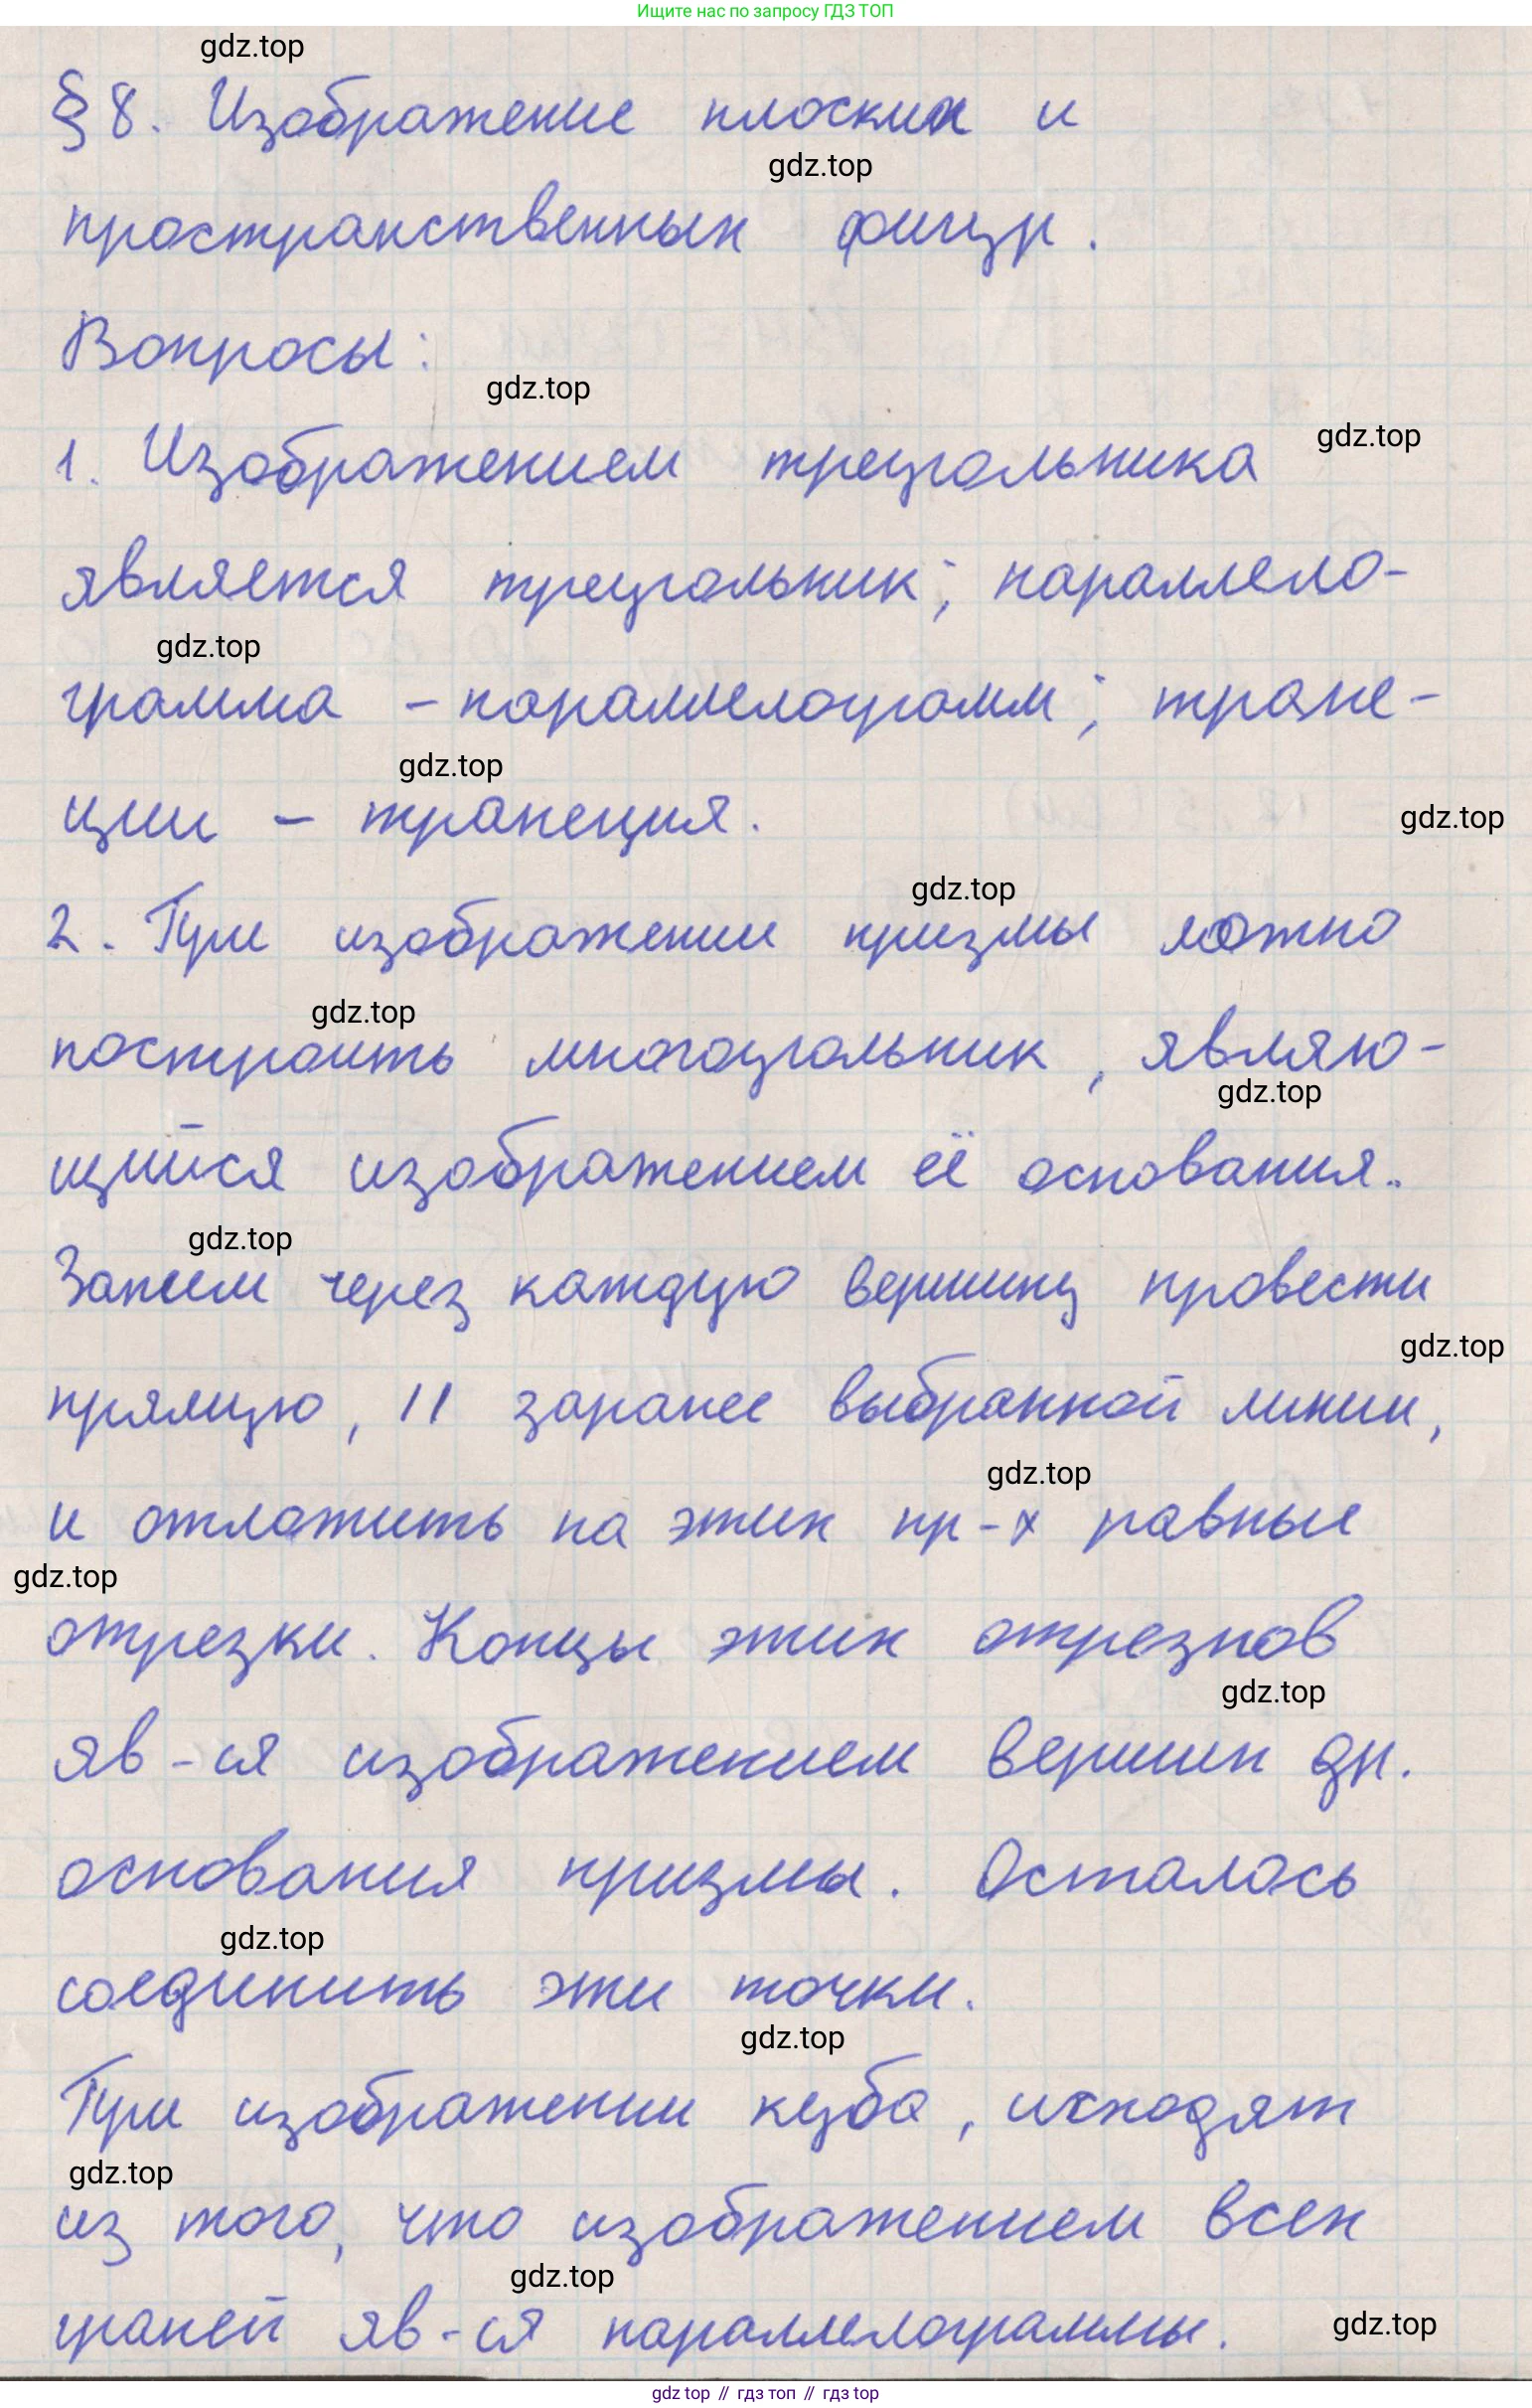 Ищите нас по запросу ГДЗ ТОП
gdz.top
§ 8. Изображение плоских и
gdz.top
пространственных фигур.
Вопросы:
gdz.top
gdz.top
1. Изображением треугольника
является треугольник; параллело-
gdz.top
грамма - параллелограмм; трапе-
gdz.top
ции - трапеция.
gdz.top
gdz.top
2. При изображении призмы можно
gdz.top
построить многоугольник, являю-
gdz.top
щийся изображением её основания.
gdz.top
Затем через каждую вершину провести
gdz.top
прямую, || заранее выбранной линии,
gdz.top
и отложить на этих пр-х равные
gdz.top
отрезки. Концы этих отрезков
gdz.top
яв-ся изображением вершин др.
основания призмы. Осталось
gdz.top
соединить эти точки.
gdz.top
При изображении куба, исходят
gdz.top
из того, что изображением всех
gdz.top
граней яв-ся параллелограммы.
gdz.top
gdz top // гдз топ // гдз top